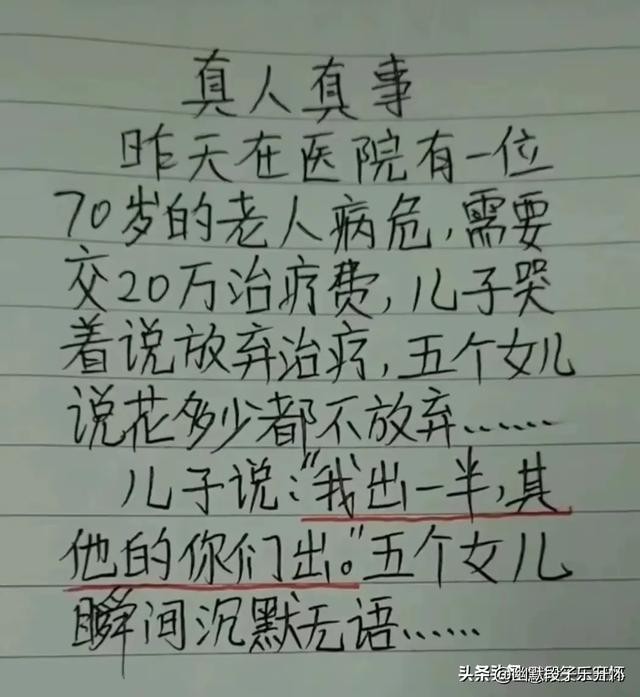 真人真事
昨天在医院有一位
70岁的老人病危,需要
交20万治疗费,儿子哭
着说放弃治疗,五个女儿
说花多少都不放弃......
儿子说:“我出一半,其
他的你们出。”五个女儿
瞬间沉默无语......
头条
@幽默段子乐开怀